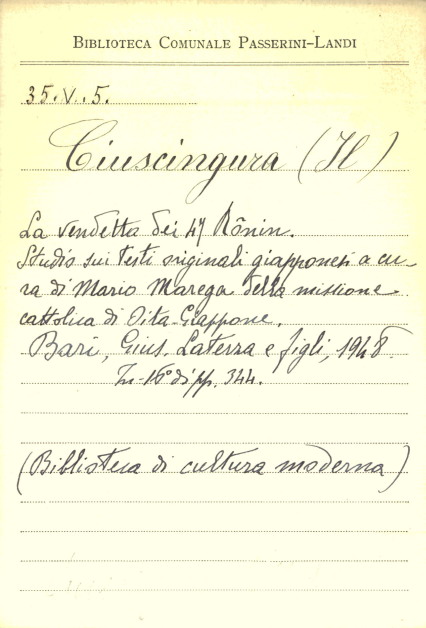 BIBLIOTECA COMUNALE PASSERINI-LANDI
35.V.5.
Ciuscingura (Il)
La vendetta dei 47 Rônin.
Studio sui testi originali giapponesi a cu-
ra di Mario Marega della missione
cattolica di Oita-Giappone.
Bari, Gius. Laterza e figli, 1948
In-16° di pp. 344.
(Biblioteca di cultura moderna)